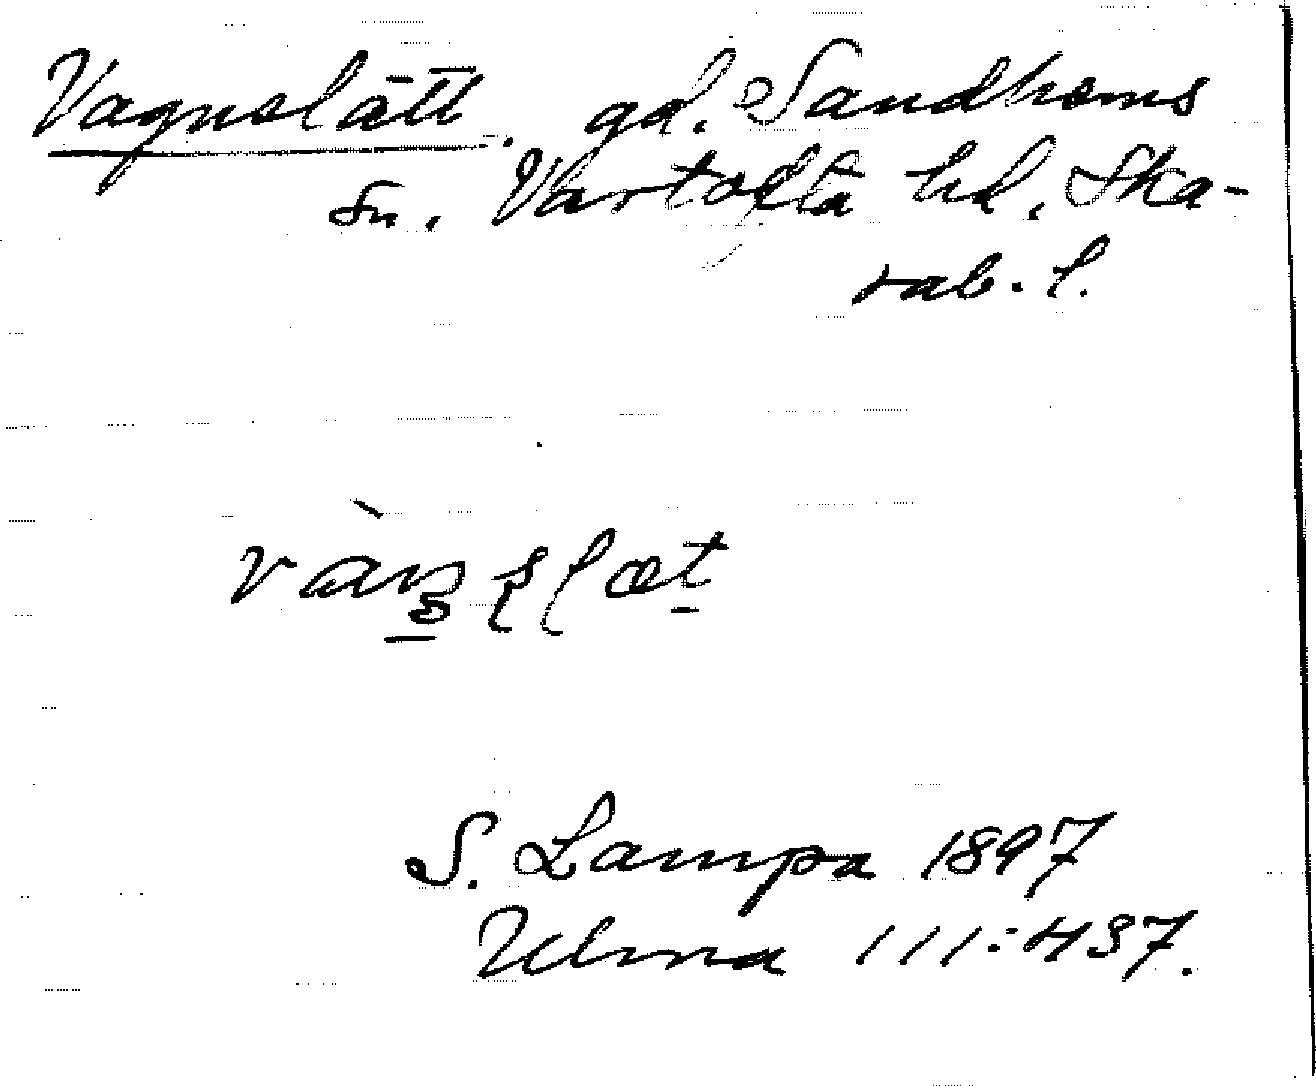 Vagnslätt. gd. Sandhems
sn. Vartofta hd. Ska-
rab. l.
S. Lampa 1897
Ulma 111:437.